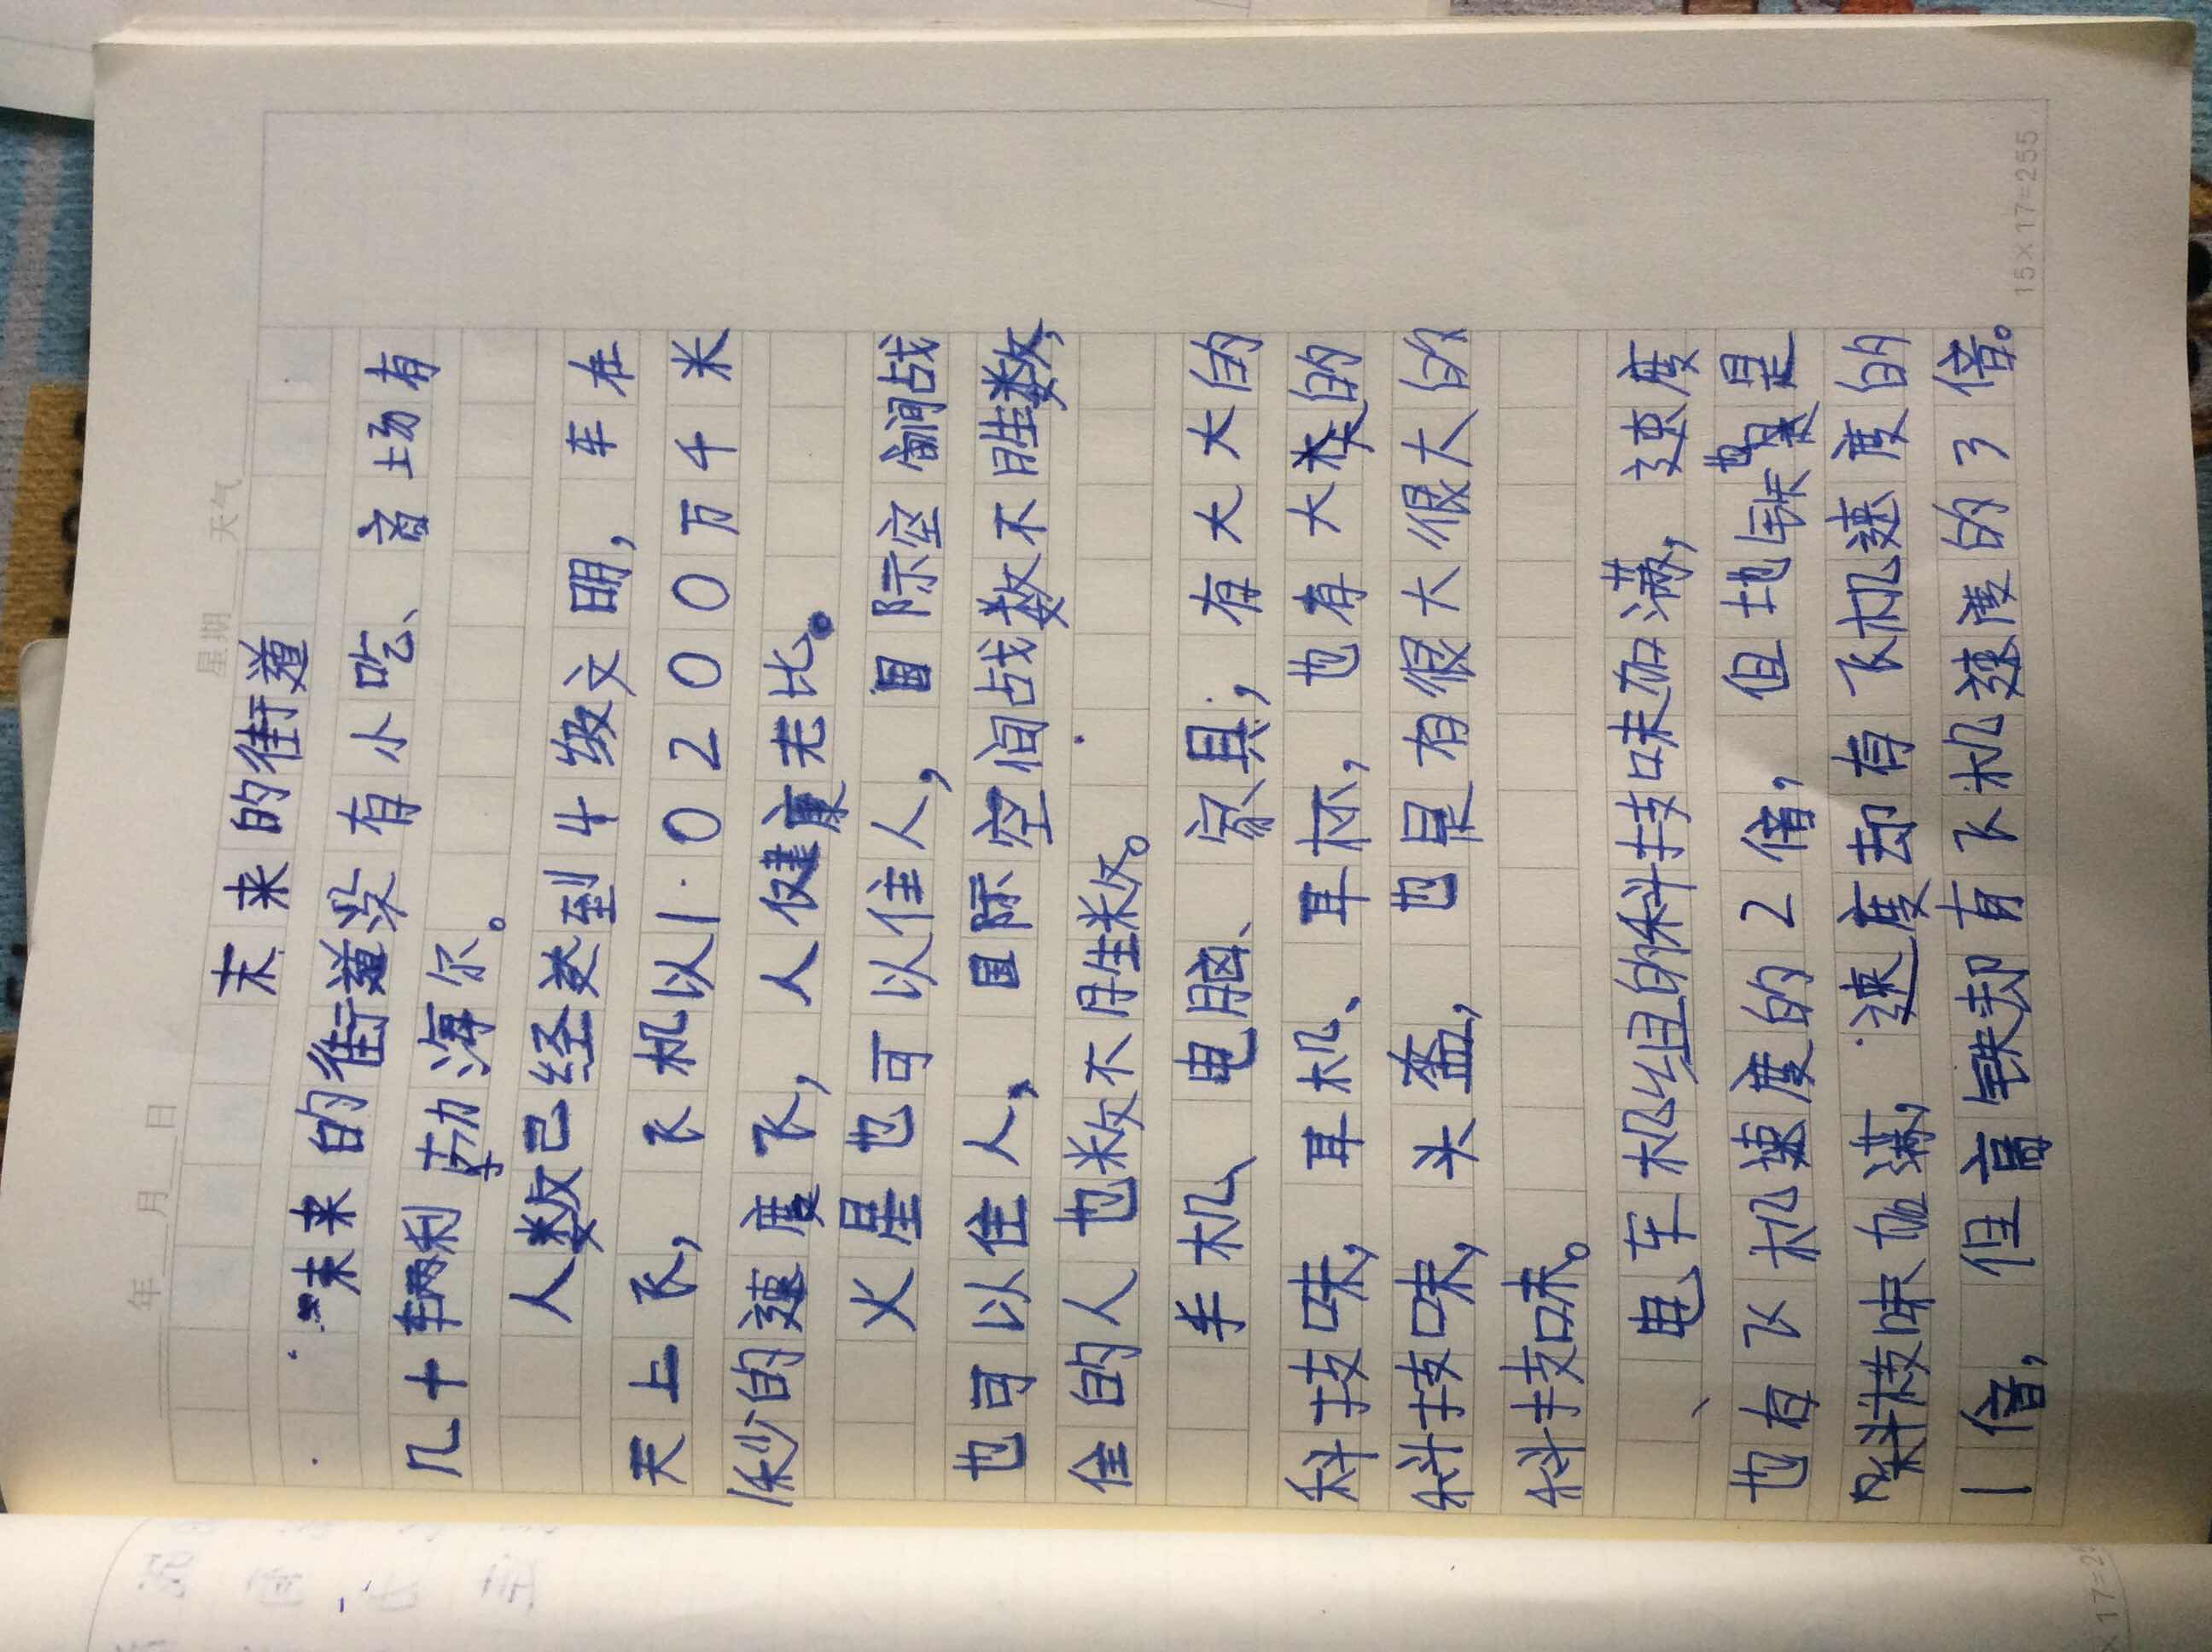 年 月 日 星期 天气
未来的街道
未来的街道没有小吃、商场有
几十辆利劳海尔。
人数已经类到4级文明，车在
天上飞，飞机以1.0200万千米
1秒的速度飞，人健康无比。
火星也可以住人，国际空间战
也可以住人，国际空间战数不胜数，
住的人也数不胜数。
手机、电脑、家具，有大大的
科技味，耳机、耳杯，也有大大的
科技味，头盔，也是有很大很大的
科技味。
电车机组的科技味加满，速度
也有飞机速度的2倍，但地铁是
科技味加满，速度却有飞机速度的
1倍，但高铁却有飞机速度的3倍。
15×17=255
×17=25